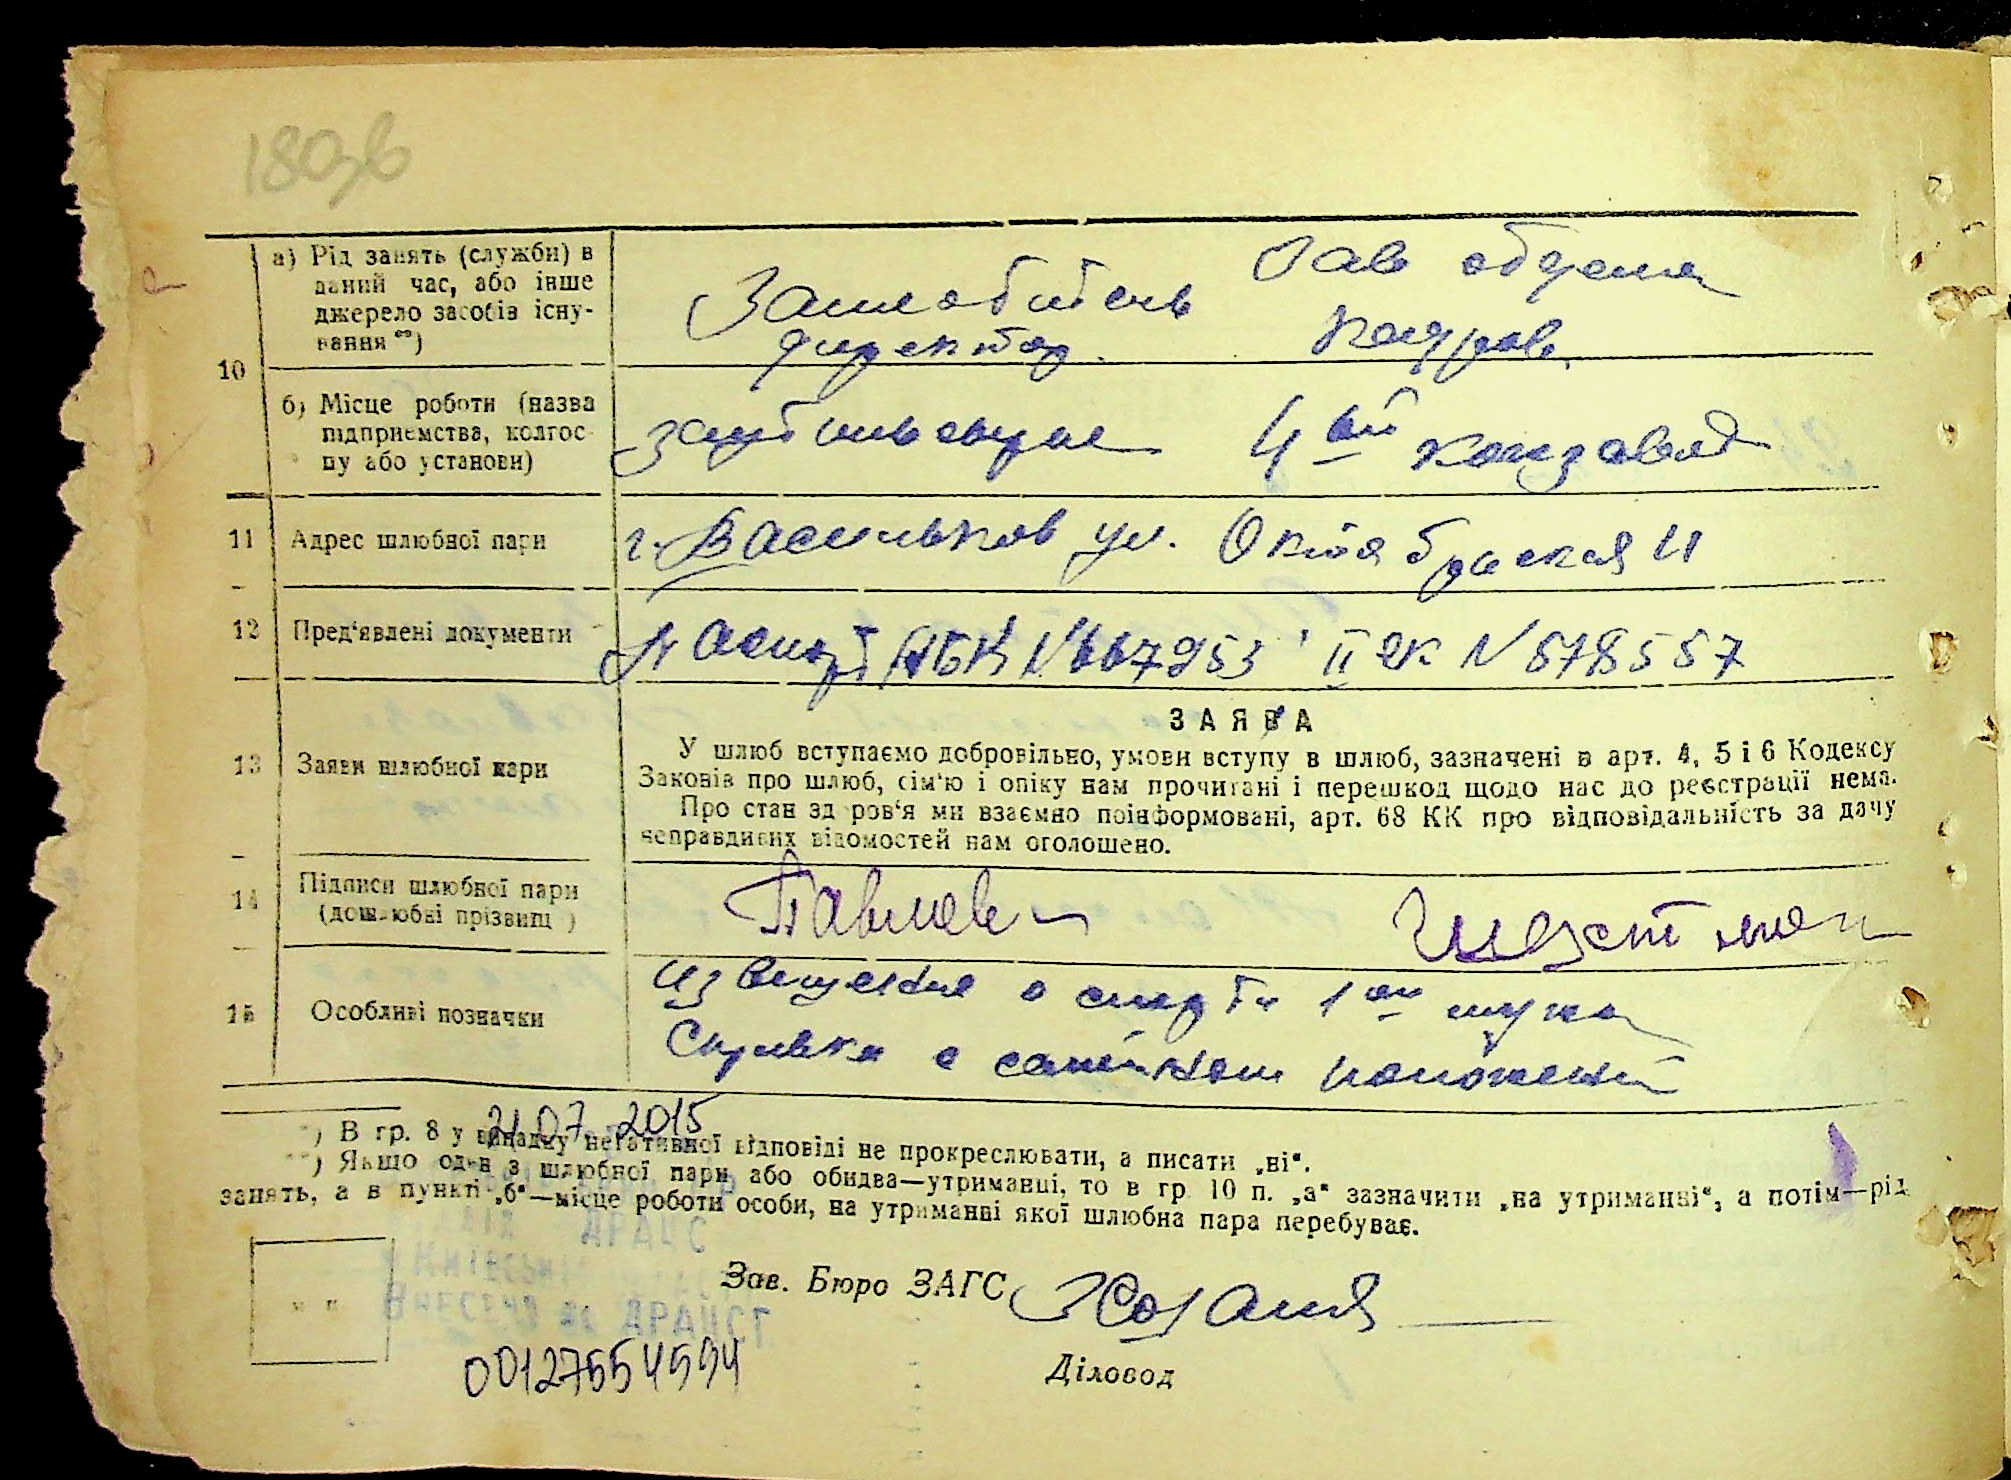 180зв
а) Рід занять (служби) в
даний час, або інше
джерело засобів існу-
вання **)
Заместитель
директор.
Зав отдела
кадров
10
б) Місце роботи (назва
підприємства, колгос-
пу або установи)
4 ый кожзавод
11 Адрес шлюбної пари
г. Васильков ул. Октябрьская 11
12 Пред'явлені документи
Паспорт № 667953 II ЯК N 578557
ЗАЯВА
13 Заяви шлюбної пари
У шлюб вступаємо добровільно, умови вступу в шлюб, зазначені в арт. 4, 5 і 6 Кодексу
Законів про шлюб, сім'ю і опіку нам прочитані і перешкод щодо нас до реєстрації нема.
Про стан здоров'я ми взаємно поінформовані, арт. 68 КК про відповідальність за дачу
неправдивих відомостей нам оголошено.
14 Підписи шлюбної пари
(дошлюбні прізвищ )
15 Особливі позначки
Извещение о смерти 1 ого мужа
Справка о семейном положении
21.07.2015
*) В гр. 8 у випадку негативної відповіді не прокреслювати, а писати „ні".
**) Якщо один з шлюбної пари або обидва—утриманці, то в гр 10 п. „а" зазначити „на утриманні", а потім—рід
занять, а в пункті „б"—місце роботи особи, на утриманні якої шлюбна пара перебуває.
ДРАЦС
Внесено до ДРАЦСГ
м п
Зав. Бюро ЗАГС
00127554594
Діловод